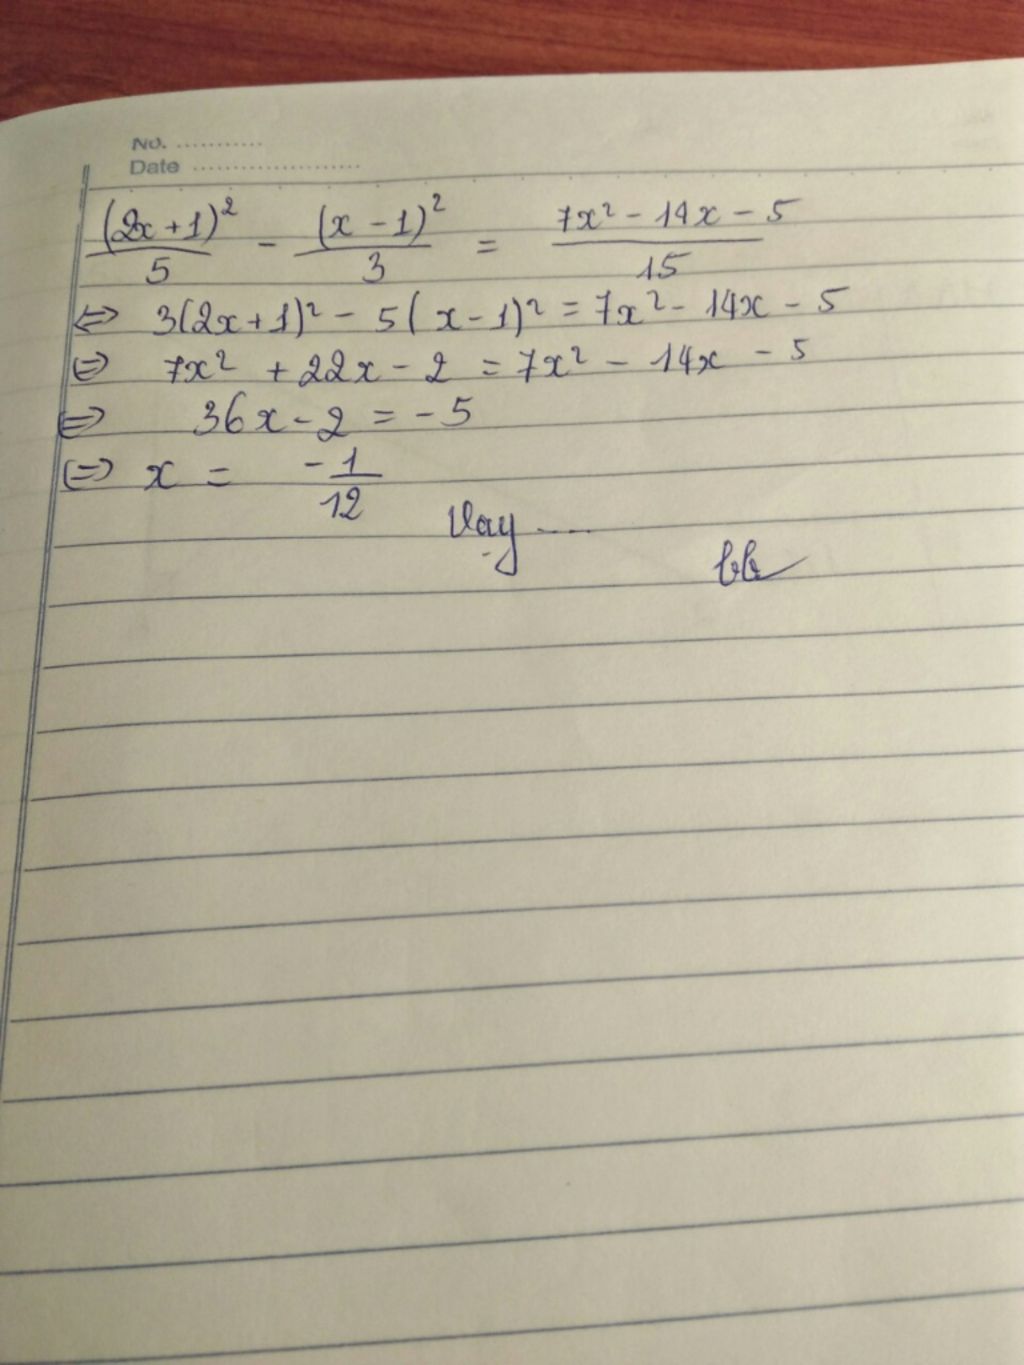 No. ...........
Date ....................
(2x+1)²/5 - (x-1)²/3 = 7x² - 14x - 5/15
⇔ 3(2x+1)² - 5(x-1)² = 7x² - 14x - 5
⇔ 7x² + 22x - 2 = 7x² - 14x - 5
⇔ 36x - 2 = -5
⇔ x = -1/12
Vậy ....